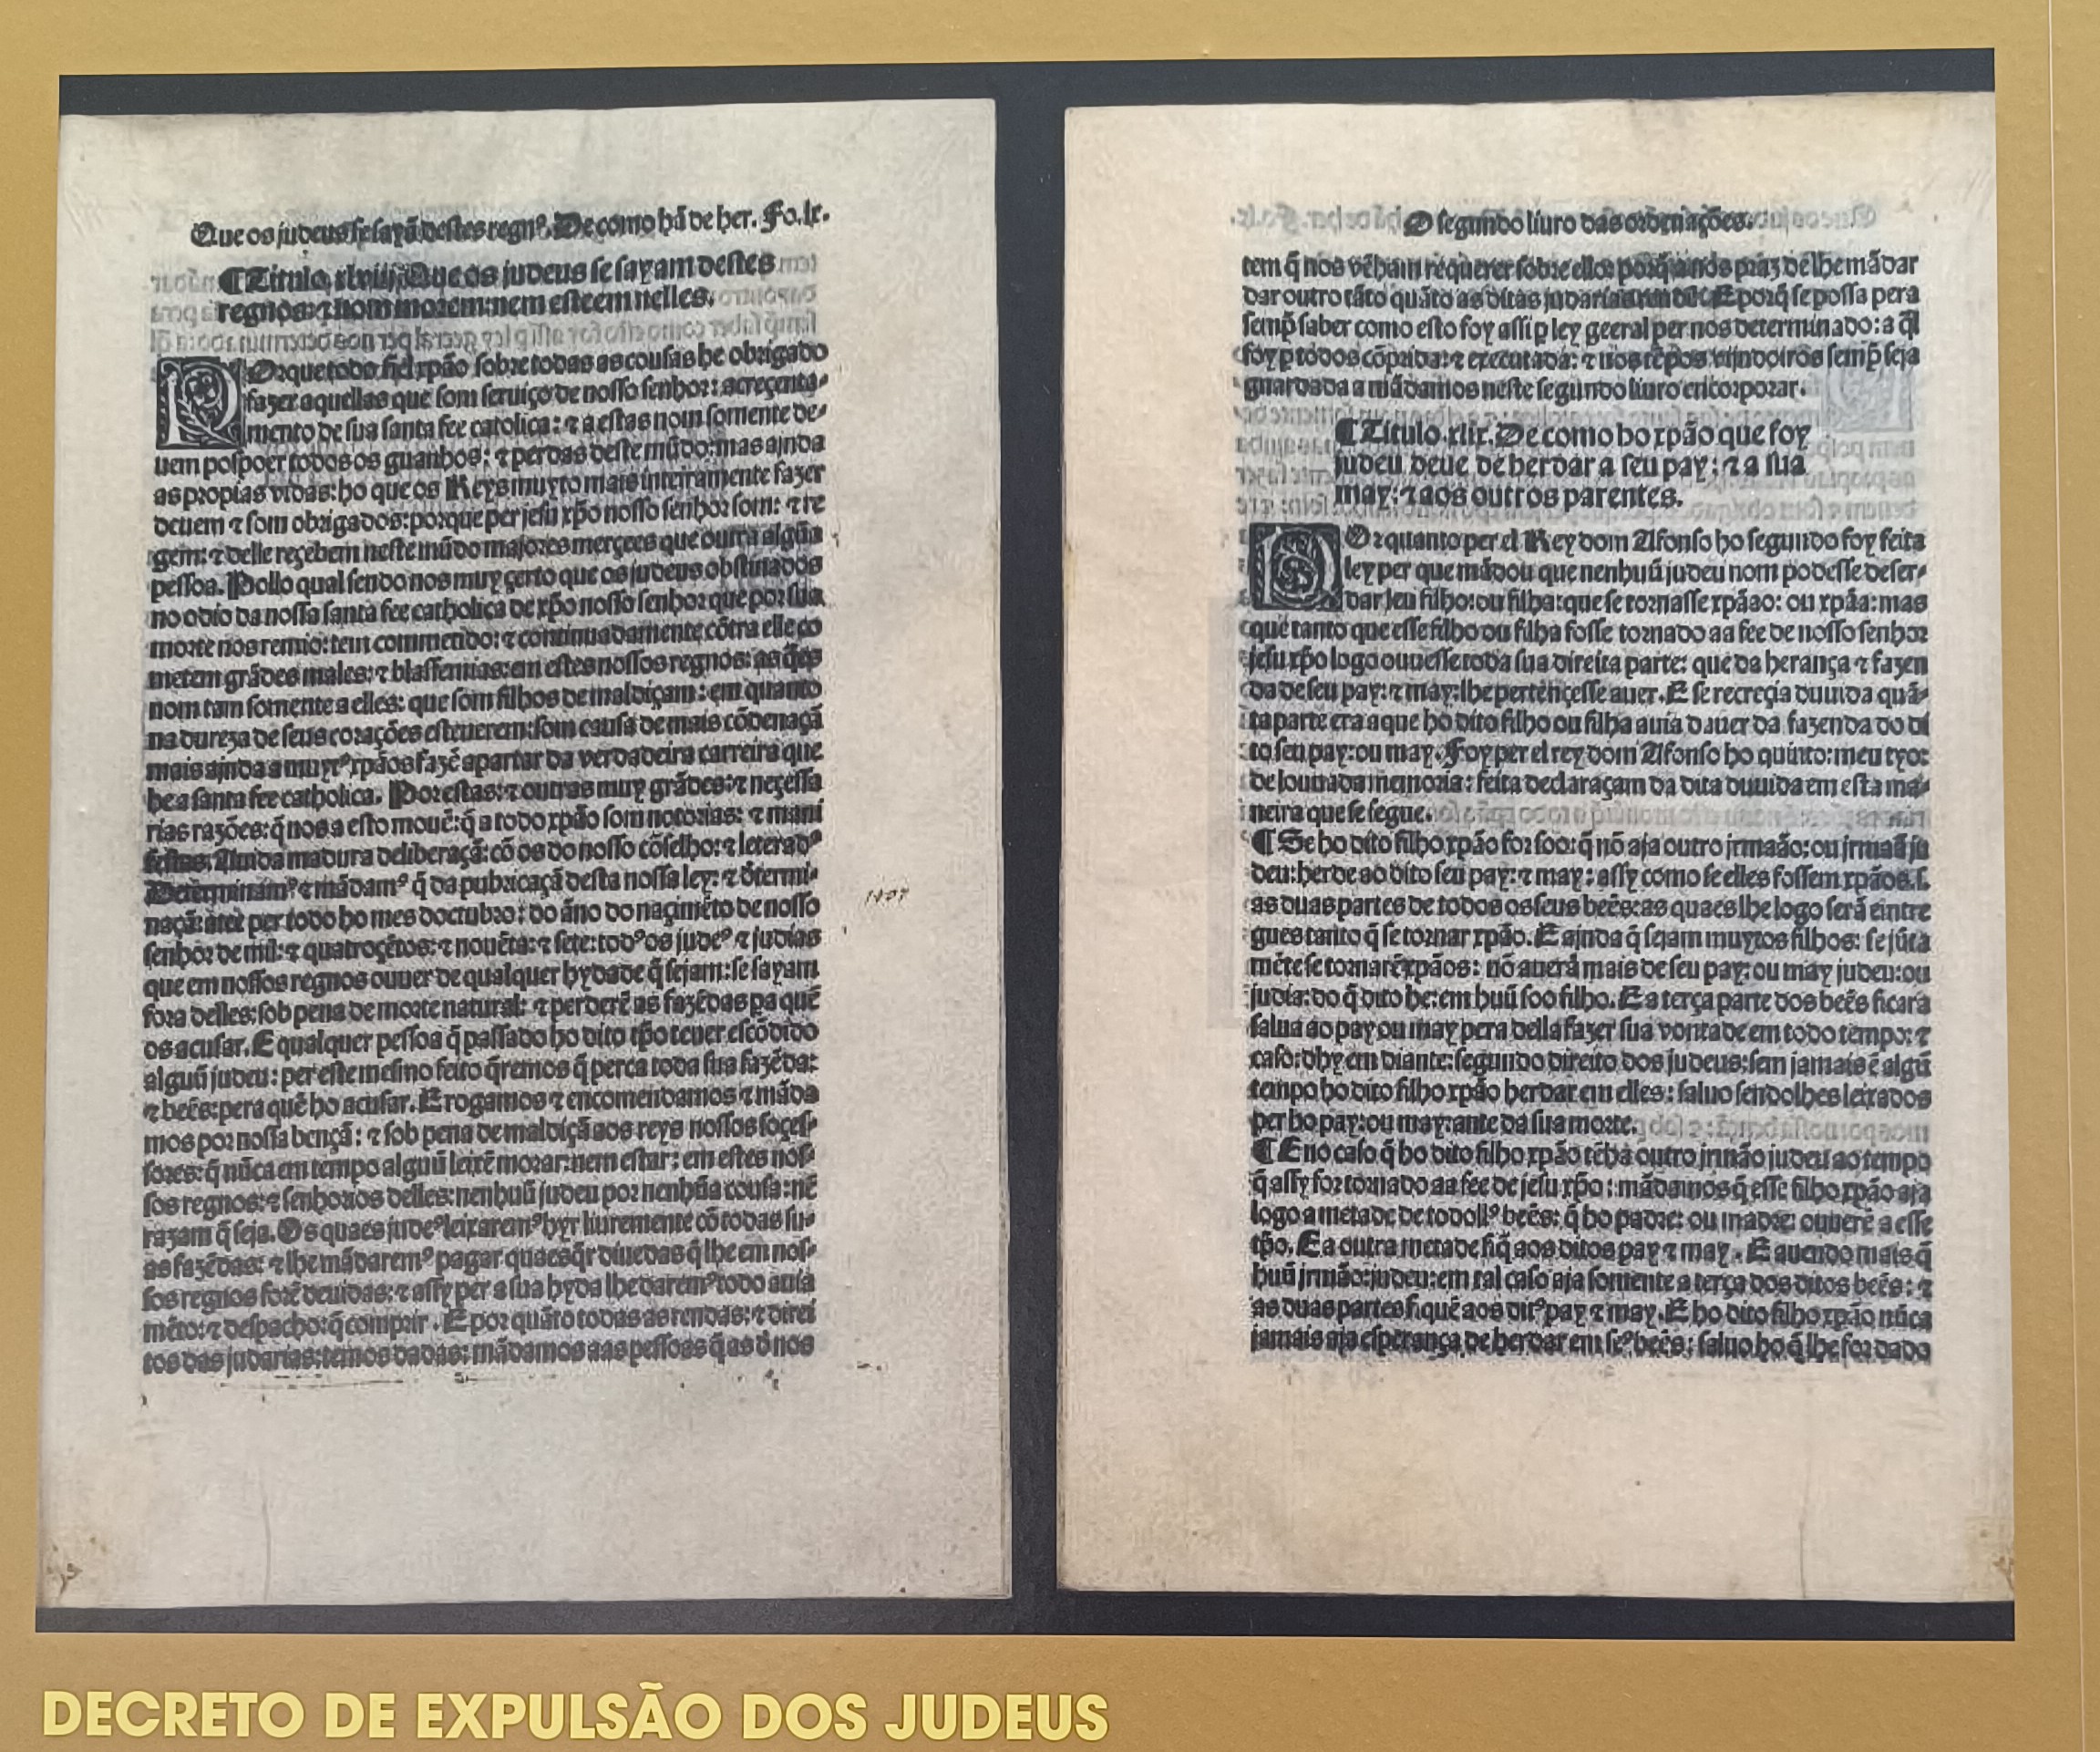 Que os judeus se sayã destes regnꝰ. De como hã de her. Fo.lx.
¶ Titulo. xlviij. Que os judeus se sayam destes
regnos: ⁊ nom morem: nem esteem nelles.
POrque todo fiel xpão sobre todas as cousas he obrigado
fazer aquellas que som seruiço de nosso senhor: acreçenta-
mento de sua santa fee catolica: ⁊ a estas nom somente de-
uem pospoer todos os guanhos: ⁊ perdas deste mũdo: mas ajnda
as propias vidas: ho que os Reys muyto mais inteiramente fazer
deuem ⁊ som obrigados: porque per jesu xp̃o nosso senhor som: ⁊ re
gem: ⁊ delle reçebem neste mũdo majores merçees que outra algũa
pessoa. Pollo qual sendo nos muy çerto que os judeus obstinados
no odio da nossa santa fee catholica de xp̃o nosso senhor que por sua
morte nos remio: tem commetido: ⁊ continuadamente cõtra elle co
metem grãdes males: ⁊ blasfemias: em estes nossos regnos: as q̃es
nom tam somente a elles: que som filhos de maldiçam: em quanto
na dureza de seus corações esteuerem: som causa de mais cõdenaçã
mais ajnda a muytꝰ xpãos fazẽ apartar da verdadeira carreira que
he a santa fee catholica. Por estas: ⁊ outras muy grãdes: ⁊ neçessa
rias razões: q̃ nos a esto mouẽ: q̃ a todo xpão som notorias: ⁊ mani
festas: Auida madura deliberaçã: cõ os do nosso cõselho: ⁊ leteradꝰ
Determinamꝰ ⁊ mãdamꝰ q̃ da pubricaçã desta nossa ley: ⁊ d̃termi-
naçã: atee per todo ho mes doctubro: do ãno do naçimẽto de nosso
senhor de mil: ⁊ quatroçẽtos: ⁊ nouẽta: ⁊ sete: todꝰ os judeꝰ ⁊ judias
que em nossos regnos ouuer de qualquer hydade q̃ sejam: se sayam
fora delles: sob pena de morte natural: ⁊ perderẽ as fazẽdas pa quẽ
os acusar. E qualquer pessoa q̃ passado ho dito tp̃o teuer escõdido
alguũ judeu: per este mesmo feito q̃remos q̃ perca toda sua fazẽda:
⁊ beẽs: pera quẽ ho acusar. E rogamos ⁊ encomendamos ⁊ mãda
mos por nossa bençã: ⁊ sob pena de maldiçã aos reys nossos soçes-
sores: q̃ nũca em tempo alguũ leixẽ morar: nem estar: em estes nos-
sos regnos: ⁊ senhorios delles: nenhuũ judeu por nenhũa cousa: nẽ
razam q̃ seja. Os quaes judeꝰ leixaremꝰ hyr liuremente cõ todas su-
as fazẽdas: ⁊ lhe mãdaremꝰ pagar quaesq̃r diuedas q̃ lhe em nos-
sos regnos forẽ deuidas: ⁊ assy per a sua hyda lhe daremꝰ todo auia
mẽto: ⁊ despacho: q̃ comprir. E por quãto todas as rendas: ⁊ direi
tos das judarias: temos dadas: mãdamos aas pessoas q̃ as d̃ nos
1497
O segundo liuro das ordenações.
tem q̃ nos vẽham requerer sobre ello: porq̃ a nos praz de lhe mãdar
dar outro tãto quãto as ditas judarias rendẽ. E porq̃ se possa pera
semp̃ saber como esto foy assi p ley geeral per nos determinado: a q̃l
foy p todos cõprida: ⁊ executada: ⁊ nos tẽpos vijndoiros semp̃ seja
guardada a mãdamos neste segundo liuro encorporar.
¶ Titulo. xlix. De como ho xpão que foy
judeu deue de herdar a seu pay: ⁊ a sua
may: ⁊ aos outros parentes.
POr quanto per el Rey dom Afonso ho segundo foy feita
ley per que mãdou que nenhuũ judeu nom podesse deser-
dar seu filho: ou filha: que se tornasse xpãao: ou xpãa: mas
que tanto que esse filho ou filha fosse tornado aa fee de nosso senhor
jesu xp̃o logo ouuesse toda sua direita parte: que da herança ⁊ fazen
da de seu pay: ⁊ may: lhe pertẽnçesse auer. E se recreçia duuida quã-
ta parte era a que ho dito filho ou filha auia dauer da fazenda do di
to seu pay: ou may. Foy per el rey dom Afonso ho quinto: meu tyo:
de louuada memoria: feita declaraçam da dita duuida em esta ma-
neira que se segue.
¶ Se ho dito filho xpão for soo: q̃ nõ aja outro jrmaão: ou jrmaã ju
deu: herde ao dito seu pay: ⁊ may: assy como se elles fossem xpãos. s.
as duas partes de todos os seus beẽs: as quaes lhe logo serã entre
gues tanto q̃ se tornar xpão. E ajnda q̃ sejam muytos filhos: se jũta
mẽte se tornarẽ xpãos: nõ auerã mais de seu pay: ou may judeu: ou
judia: do q̃ dito he: em huũ soo filho. E a terça parte dos beẽs ficara
salua ao pay ou may pera della fazer sua vontade em todo tempo: ⁊
caso: dhy em diante: segundo direito dos judeus: sem jamais ẽ algũ
tempo ho dito filho xpão herdar em elles: saluo sendolhes leixados
per ho pay: ou may: ante da sua morte.
¶ E no caso q̃ ho dito filho xpão tẽha outro jrmão judeu ao tempo
q̃ assy for tornado aa fee de jesu xp̃o: mãdamos q̃ esse filho xpão aja
logo a metade de todollꝰ beẽs: q̃ ho padre: ou madre: ouuerẽ a esse
tp̃o. E a outra metade fiq̃ aos ditos pay ⁊ may. E auendo mais q̃
huũ jrmão: judeu: em tal caso aja somente a terça dos ditos beẽs: ⁊
as duas partes fiquẽ aos ditꝰ pay ⁊ may. E ho dito filho xpão nũca
jamais aja esperança de herdar em seꝰ beẽs: saluo ho q̃ lhe for dado
DECRETO DE EXPULSÃO DOS JUDEUS